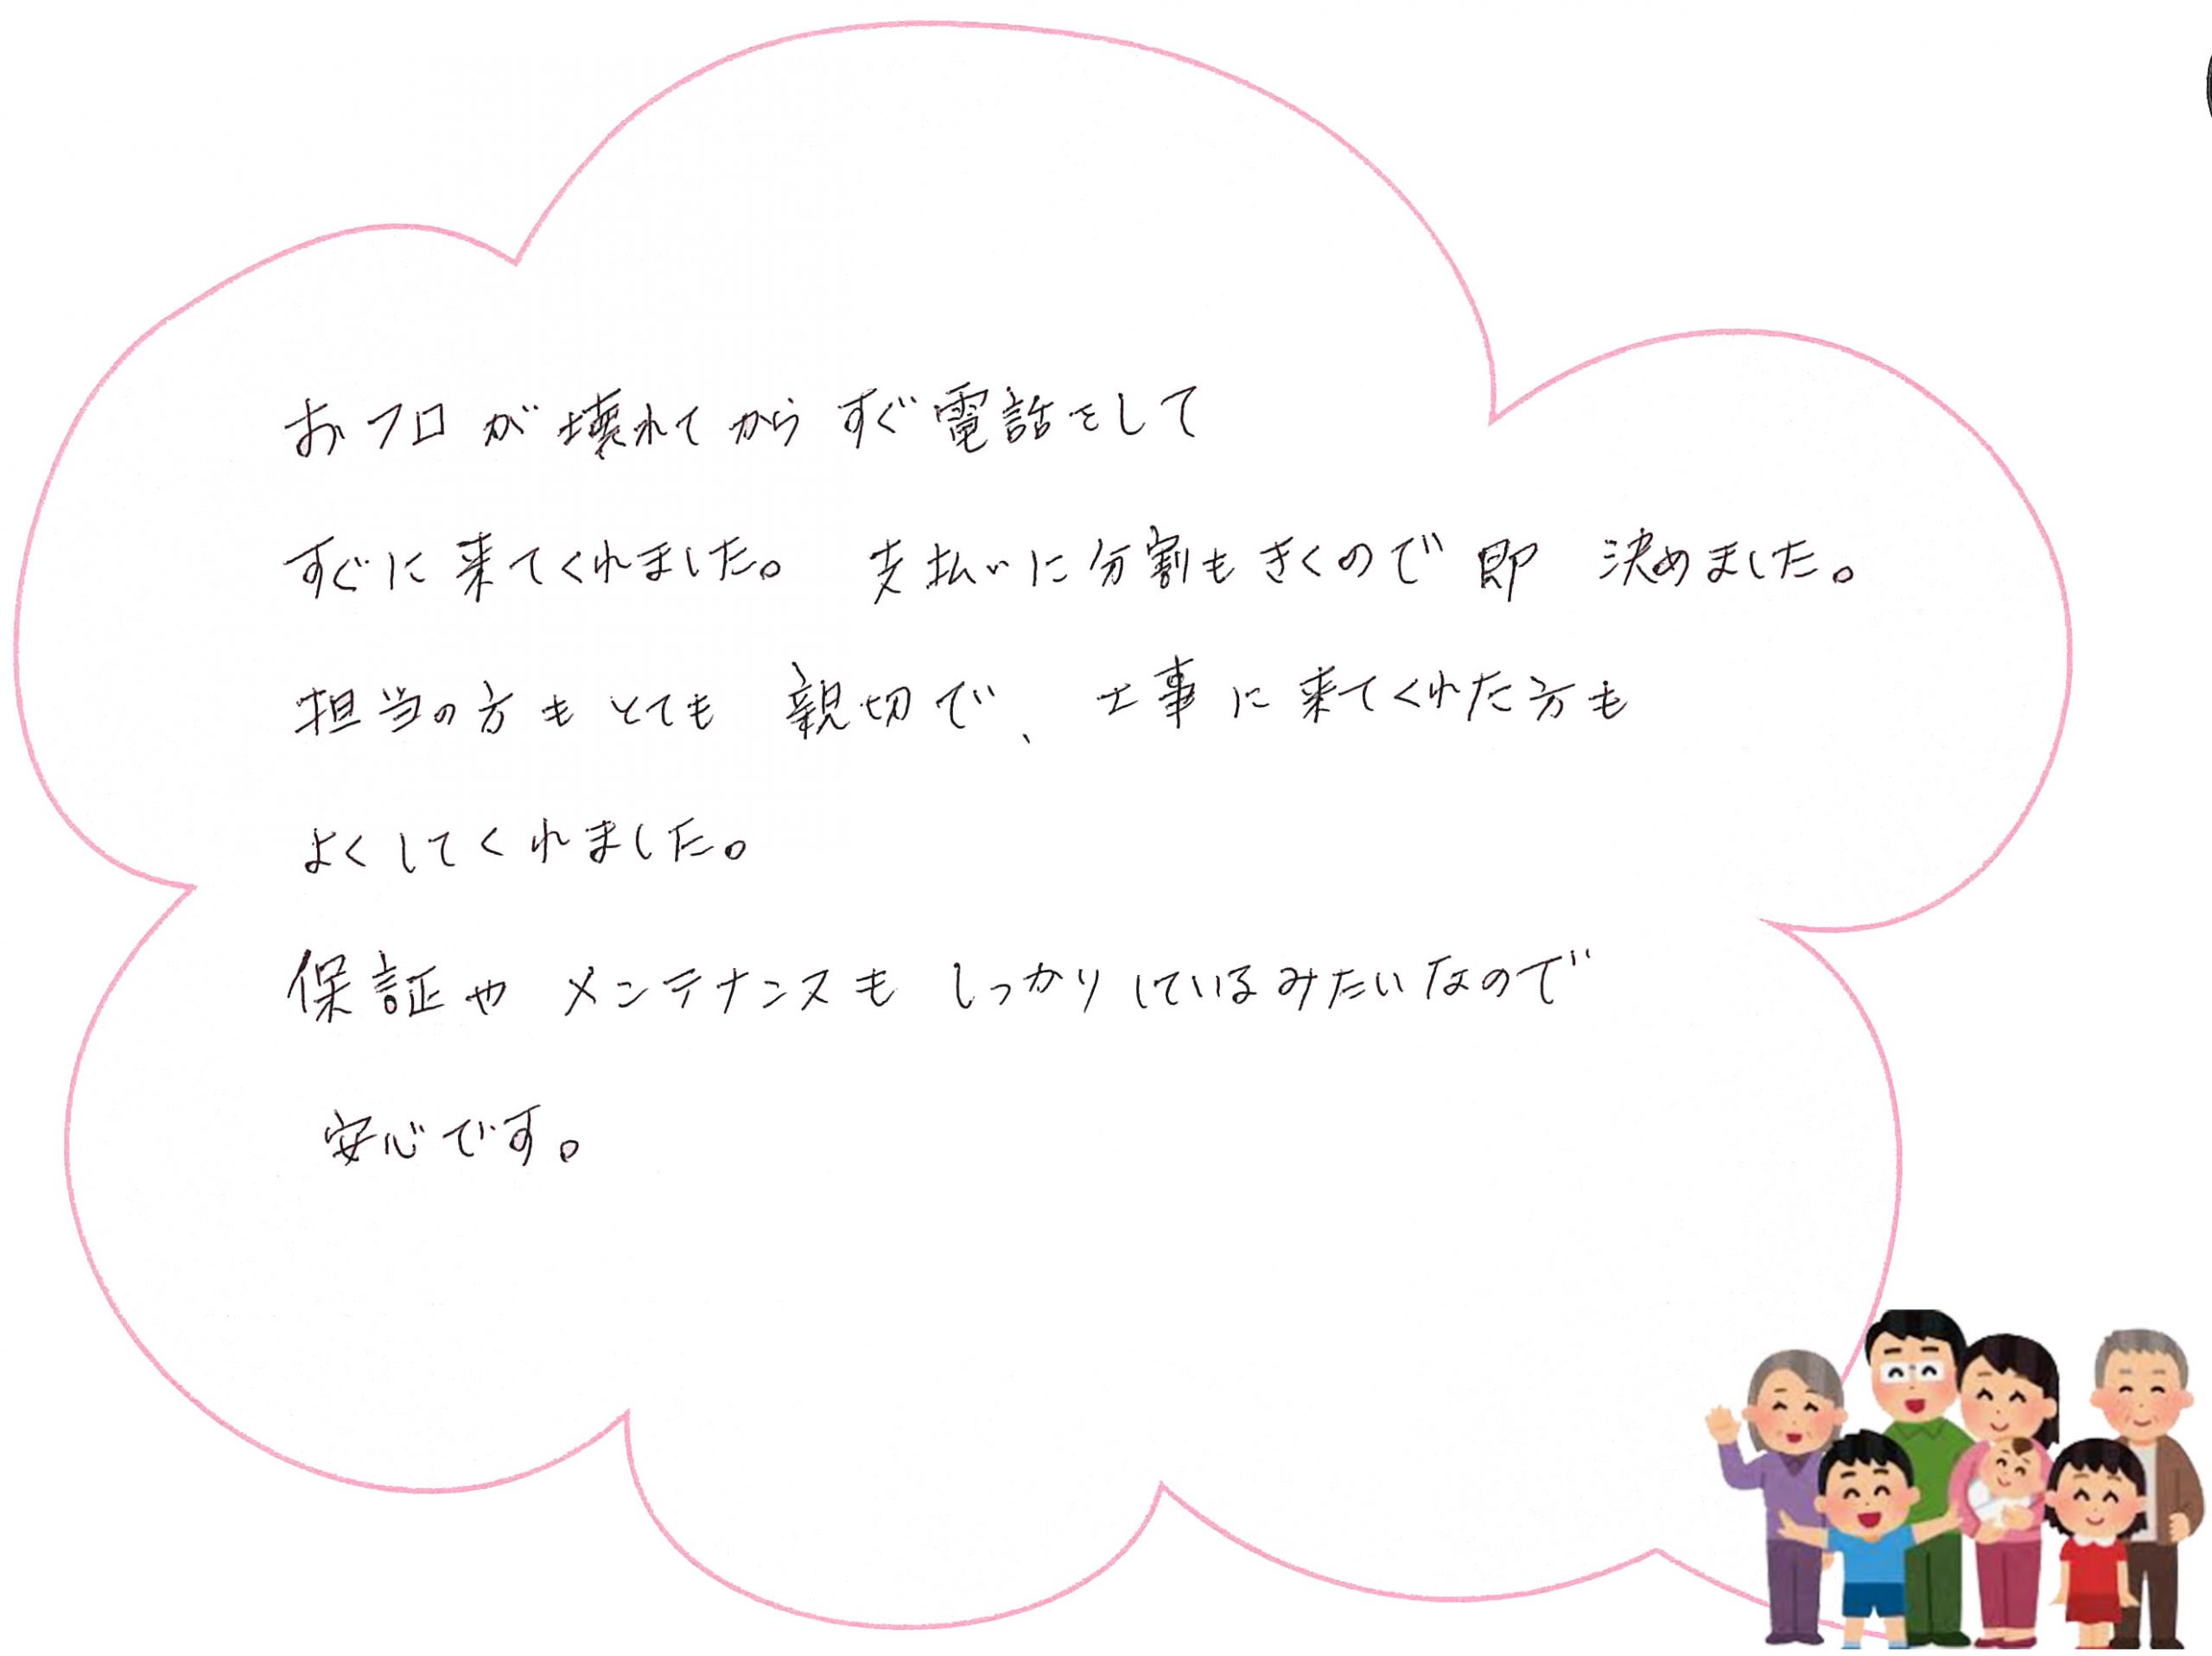 おフロが壊れてからすぐ電話をして
すぐに来てくれました。 支払いに分割もきくので即 決めました。
担当の方もとても 親切で、 工事に来てくれた方も
よくしてくれました。
保証やメンテナンスも しっかりしているみたいなので
安心です。